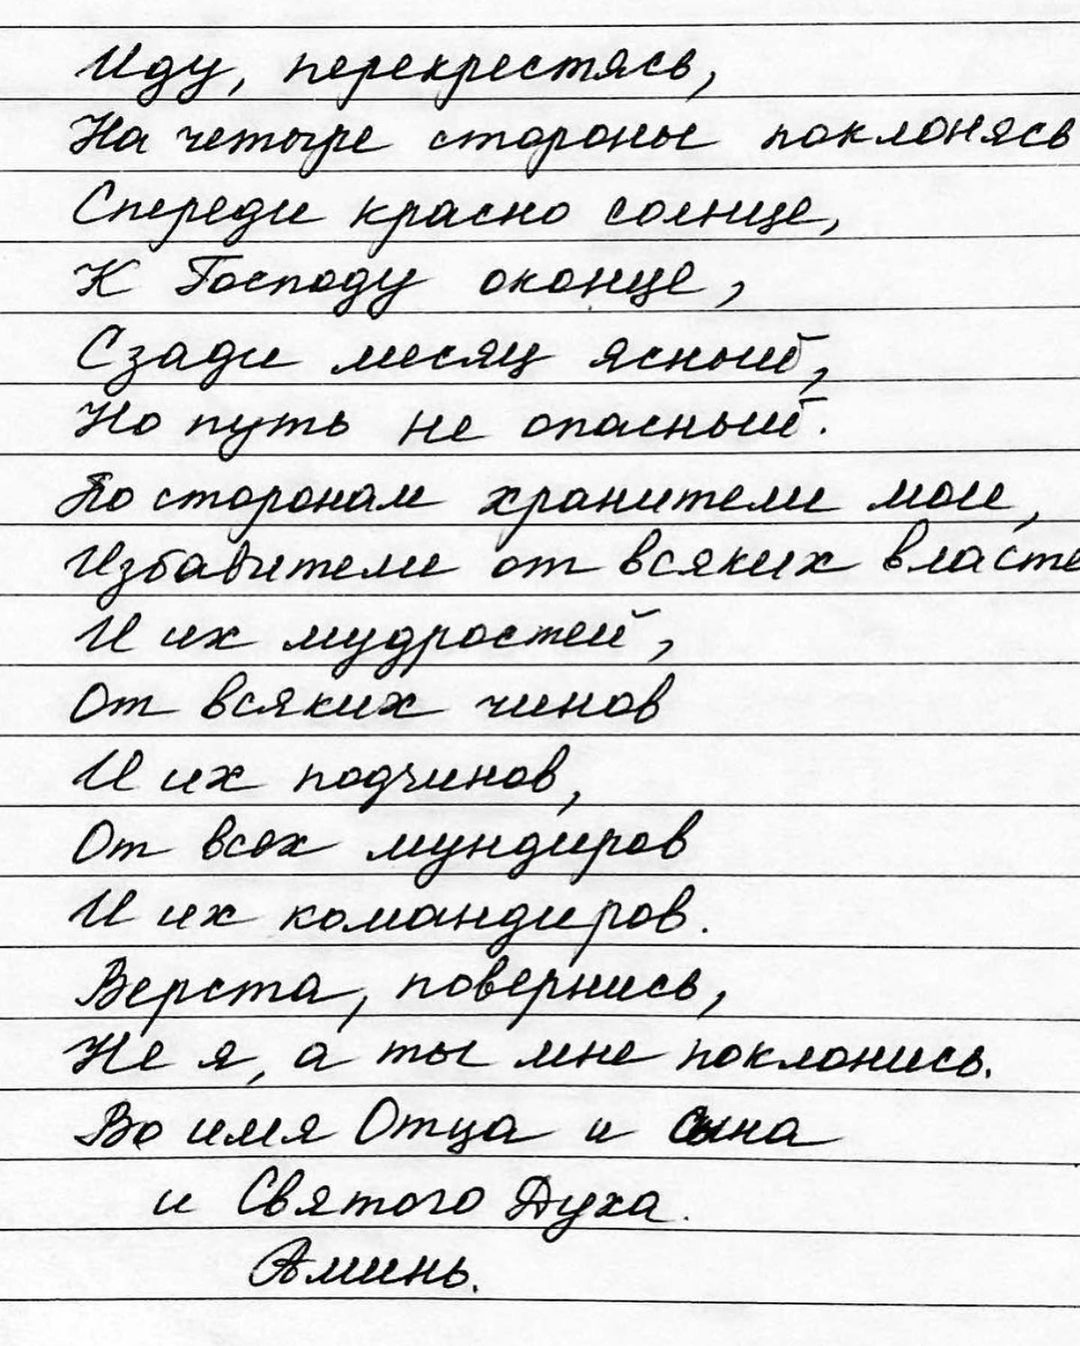 Иду, перекрестясь,
На четыре стороны поклонясь
Спереди красно солнце,
К Господу оконце,
Сзади месяц ясный,
Но путь не опасный.
По сторонам хранители мои,
Избавители от всяких власте
И их мудростей,
От всяких чинов
И их подчинов,
От всех мундиров
И их командиров.
Верста, повернись,
Не я, а ты мне поклонись.
Во имя Отца и Сына
и Святого Духа.
Аминь.